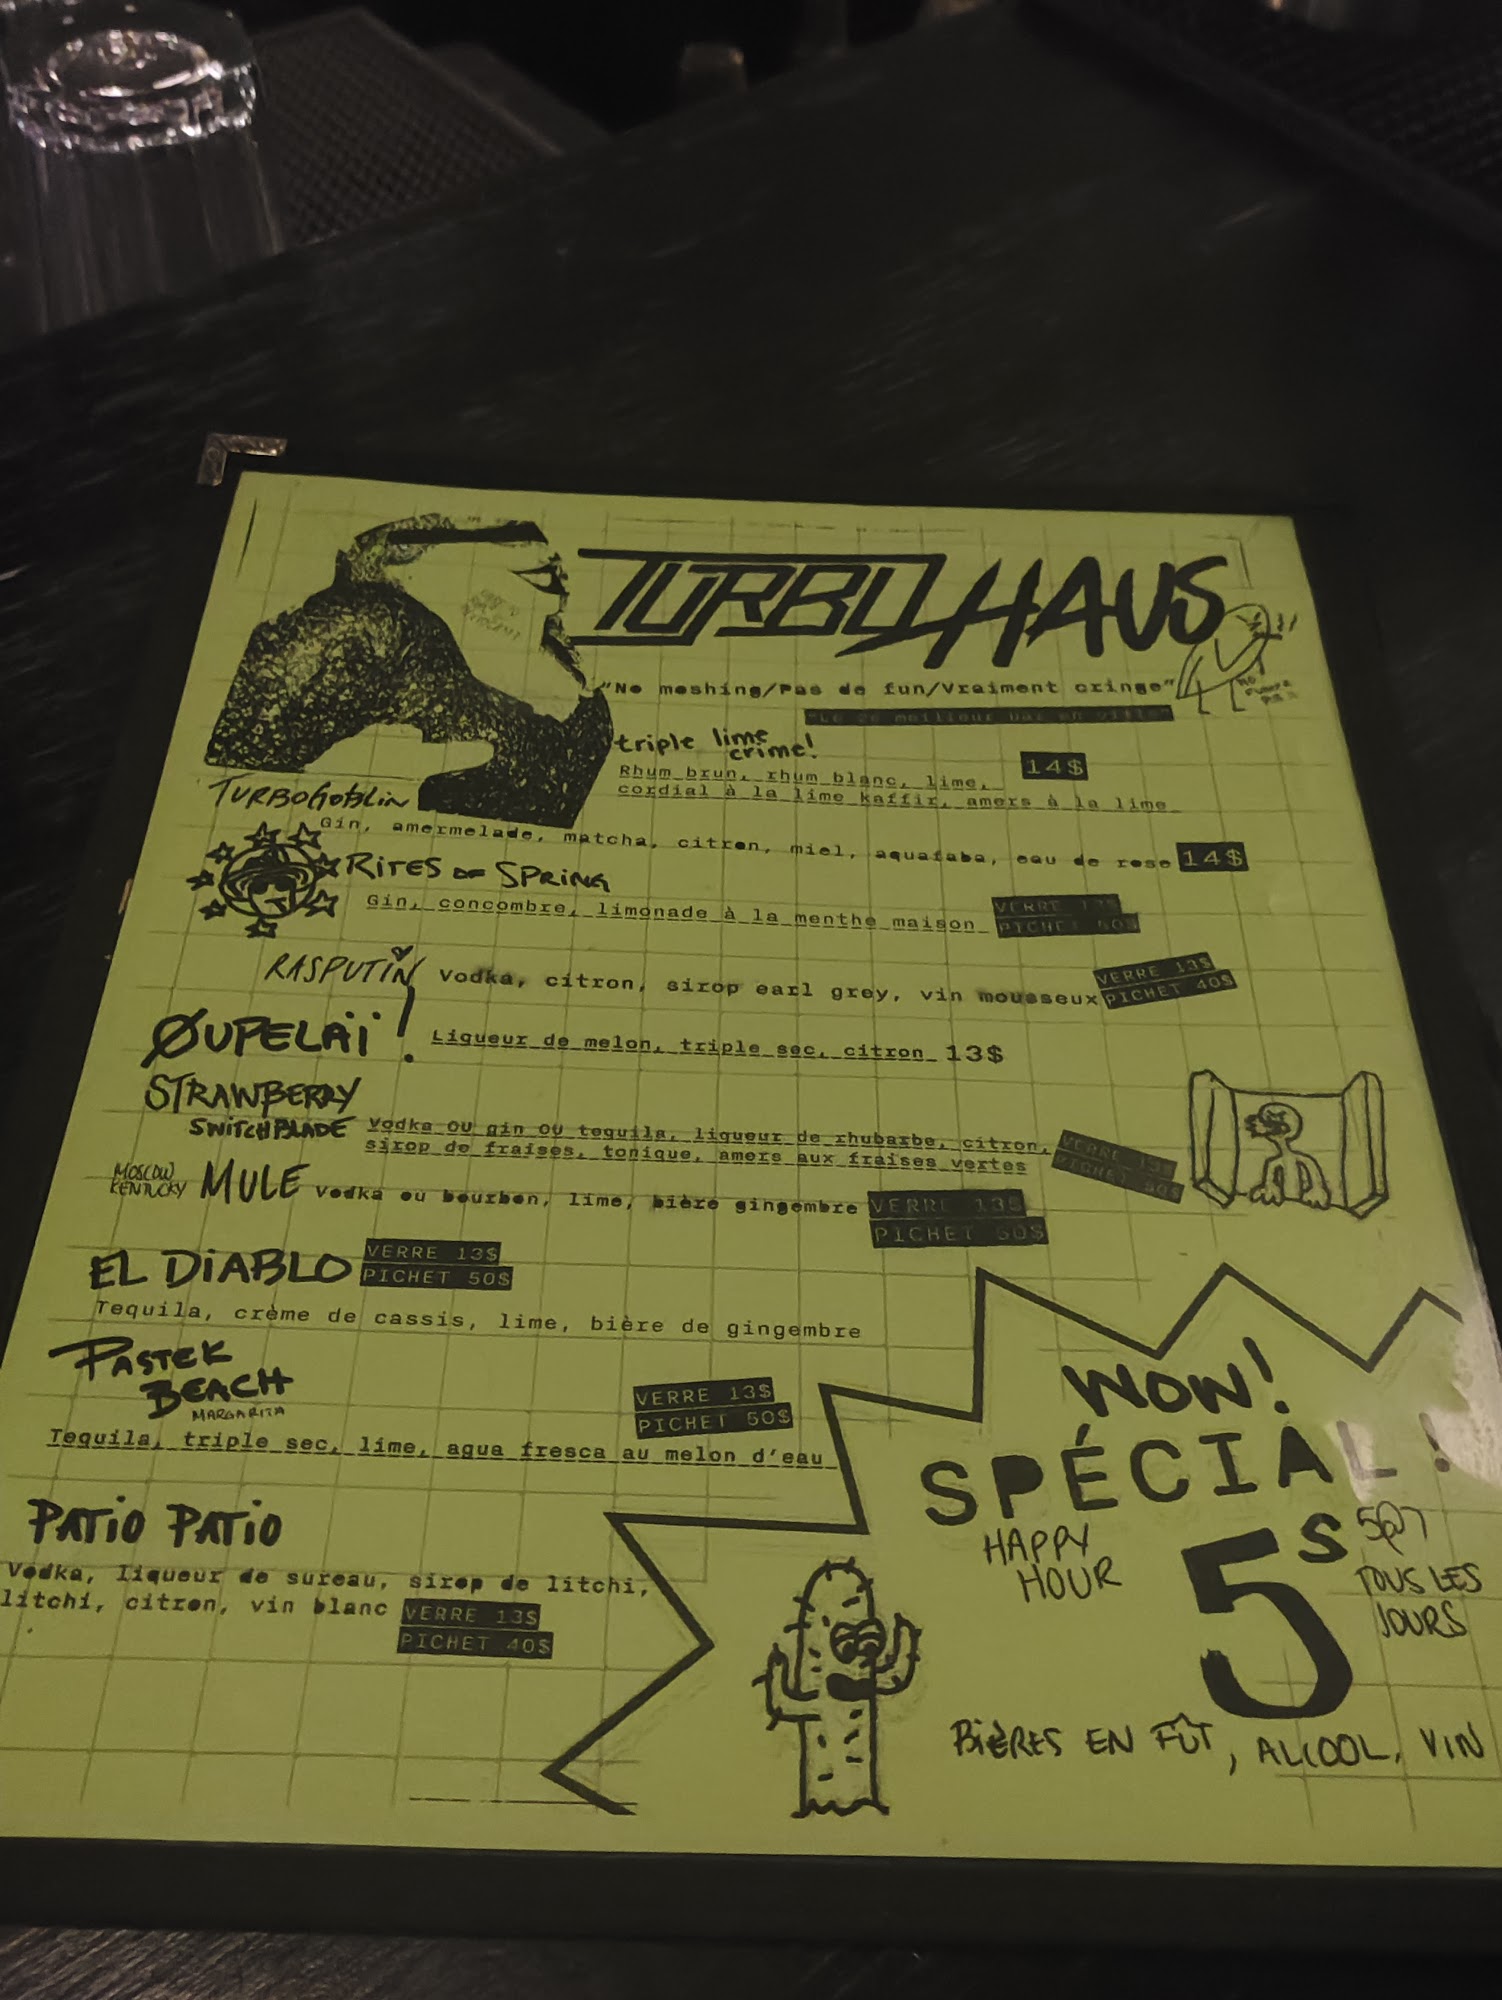 TURBO HAUS
"No moshing/Pas de fun/Vraiment cringe"
"Le 2e meilleur bar en ville"
triple lime crime!
14$
Rhum brun, rhum blanc, lime,
cordial à la lime kaffir, amers à la lime
TURBOGOBLIN
Gin, amermelade, matcha, citron, miel, aquafaba, eau de rose 14$
RITES OF SPRING
Gin, concombre, limonade à la menthe maison
VERRE 13$
PICHET 50$
RASPUTIN
Vodka, citron, sirop earl grey, vin mousseux
VERRE 13$
PICHET 40$
ØUPELAÏ!
Liqueur de melon, triple sec, citron 13$
STRAWBERRY
SWITCHBLADE
Vodka ou gin ou tequila, liqueur de rhubarbe, citron,
sirop de fraises, tonique, amers aux fraises vertes
VERRE 13$
PICHET 50$
MOSCOW
KENTUCKY
MULE
Vodka ou bourbon, lime, bière gingembre
VERRE 13$
PICHET 50$
EL DIABLO
VERRE 13$
PICHET 50$
Tequila, crème de cassis, lime, bière de gingembre
PASTEK
BEACH
MARGARITA
VERRE 13$
PICHET 50$
Tequila, triple sec, lime, agua fresca au melon d'eau
PATIO PATIO
Vodka, liqueur de sureau, sirop de litchi,
litchi, citron, vin blanc
VERRE 13$
PICHET 40$
WOW!
SPÉCIAL!
HAPPY
HOUR
5$
5@7
TOUS LES
JOURS
BIÈRES EN FÛT, ALCOOL, VIN